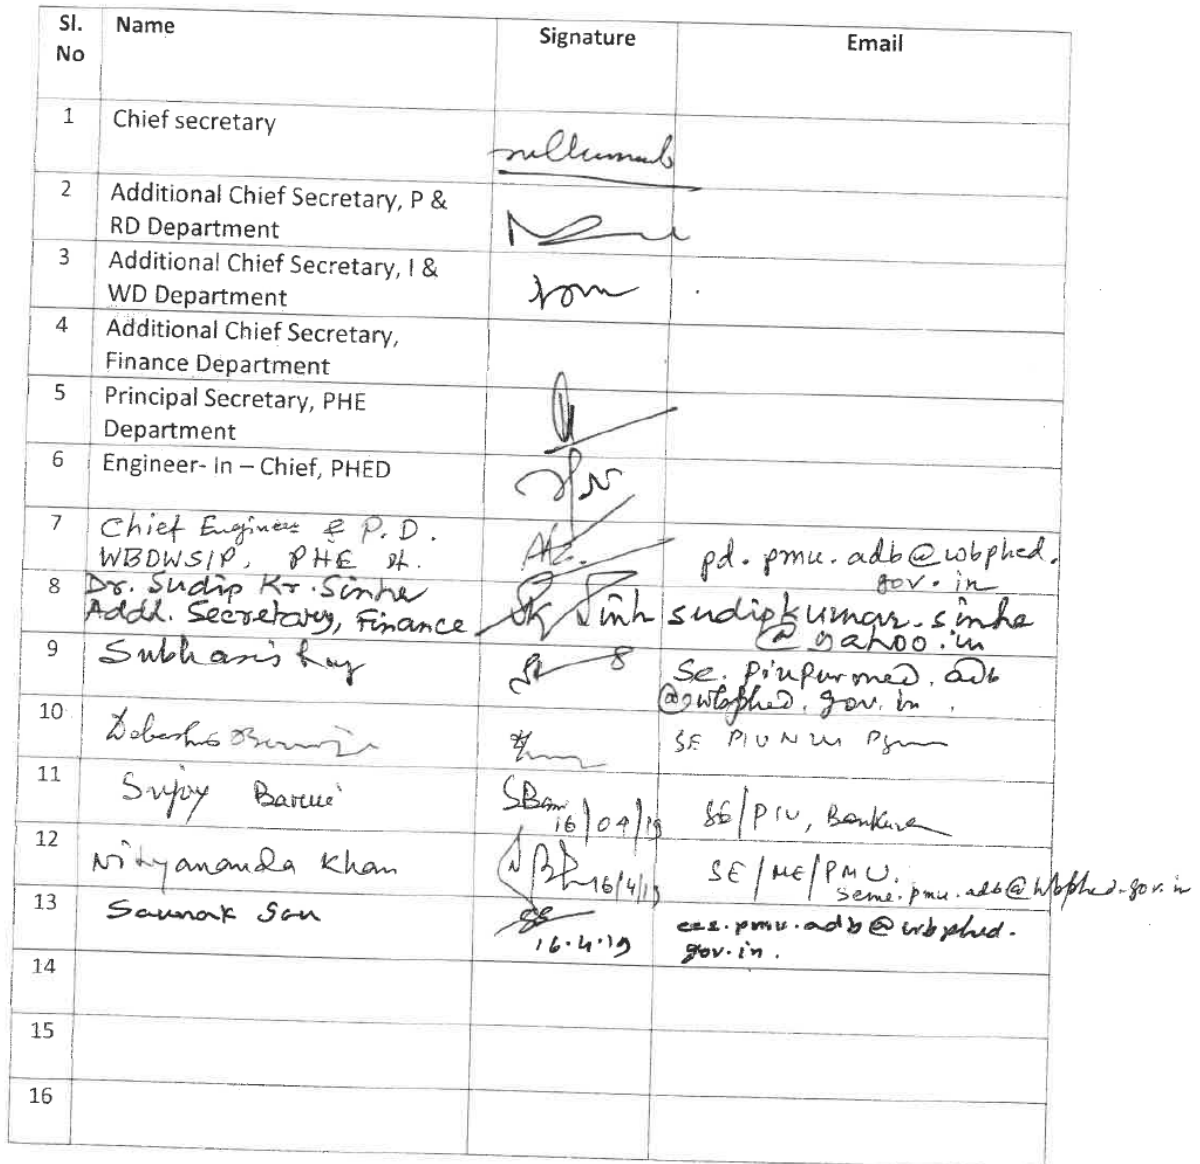 Sl. No Name Signature Email
1 Chief secretary
2 Additional Chief Secretary, P &
RD Department
3 Additional Chief Secretary, I &
WD Department
4 Additional Chief Secretary,
Finance Department
5 Principal Secretary, PHE
Department
6 Engineer- In – Chief, PHED
7 Chief Engineer & P.D.
WBDWSIP, PHE
pd.pmu.adb@wbphed.
gov.in
8 Dr. Sudip Kr. Sinha
Addl. Secretary, Finance
sudipkumar.sinha
@yahoo.in
9 Subhasis
@wbphed.gov.in.
10
SE PIU
11 Sujoy Barui
16/04/19
SE/PIU, Bankura
12 Nityananda Khan
16/4/19
SE/ME/PMU.
seme.pmu.adb@wbphed.gov.in
13 Saunak Sau
16.4.19
.pmu.adb@wbphed.
gov.in.
14
15
16